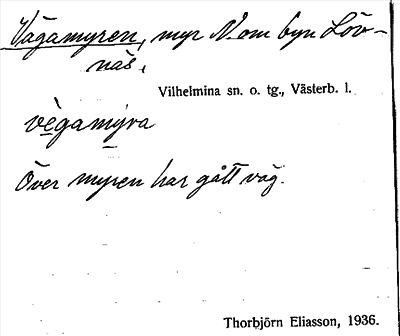 Vägamyren, myr N. om byn Löv-
näs,
Vilhelmina sn. o. tg., Västerb. l.
vègamýra
Över myren har gått väg.
Thorbjörn Eliasson, 1936.